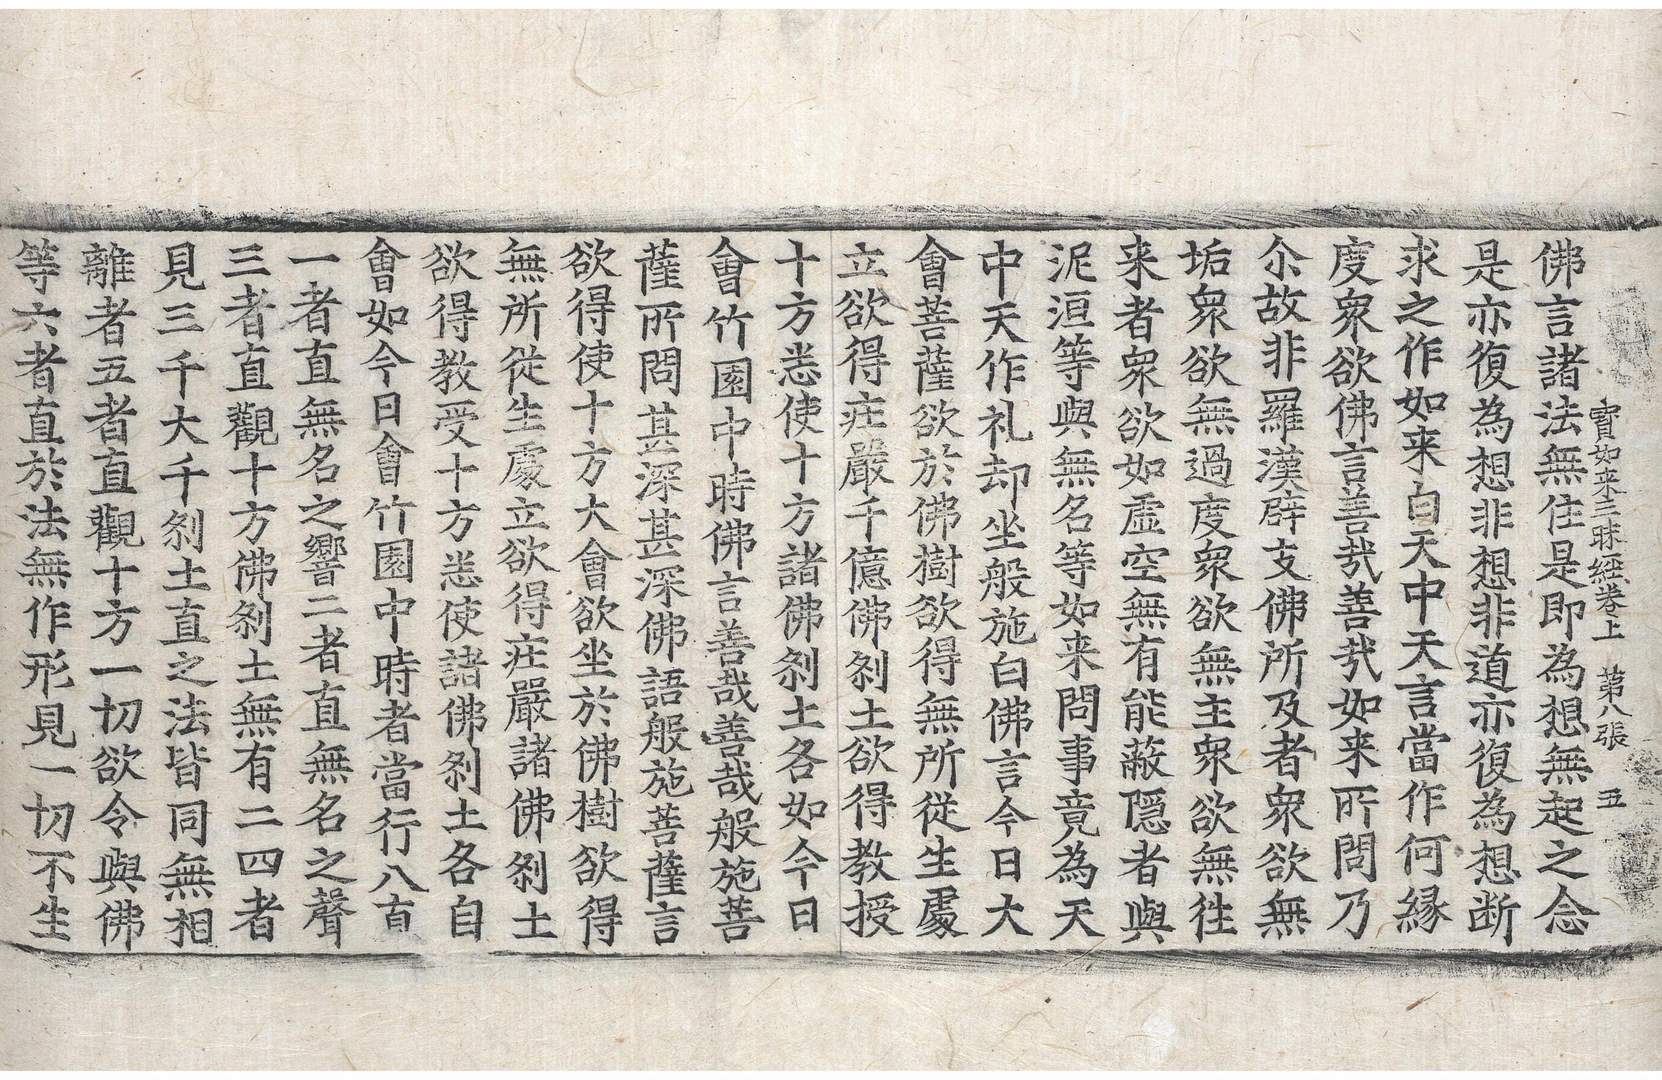 寶如来三昧經卷上　第八張　五
佛言諸法無住是即為想無起之念
是亦復為想非想非道亦復為想断
求之作如来白天中天言當作何縁
度衆欲佛言善㢤善㢤如来所問乃
尒故非羅漢辟支佛所及者衆欲無
垢衆欲無過度衆欲無主衆欲無徃
来者衆欲如虛空無有能蔽隱者與
泥洹等與無名等如来問事竟為天
中天作礼却坐般施白佛言今日大
會菩薩欲於佛樹欲得無所從生處
立欲得莊嚴千億佛刹土欲得教授
十方悉使十方諸佛刹土各如今日
會竹園中時佛言善哉善哉般施菩
薩所問甚深甚深佛語般施菩薩言
欲得使十方大會欲坐於佛樹欲得
無所從生處立欲得莊嚴諸佛刹土
欲得教受十方悉使諸佛刹土各自
會如今日會竹園中時者當行八直
一者直無名之響二者直無名之聲
三者直觀十方佛刹土無有二四者
見三千大千刹土直之法皆同無相
離者五者直觀十方一切欲令與佛
等六者直於法無作形見一切不生